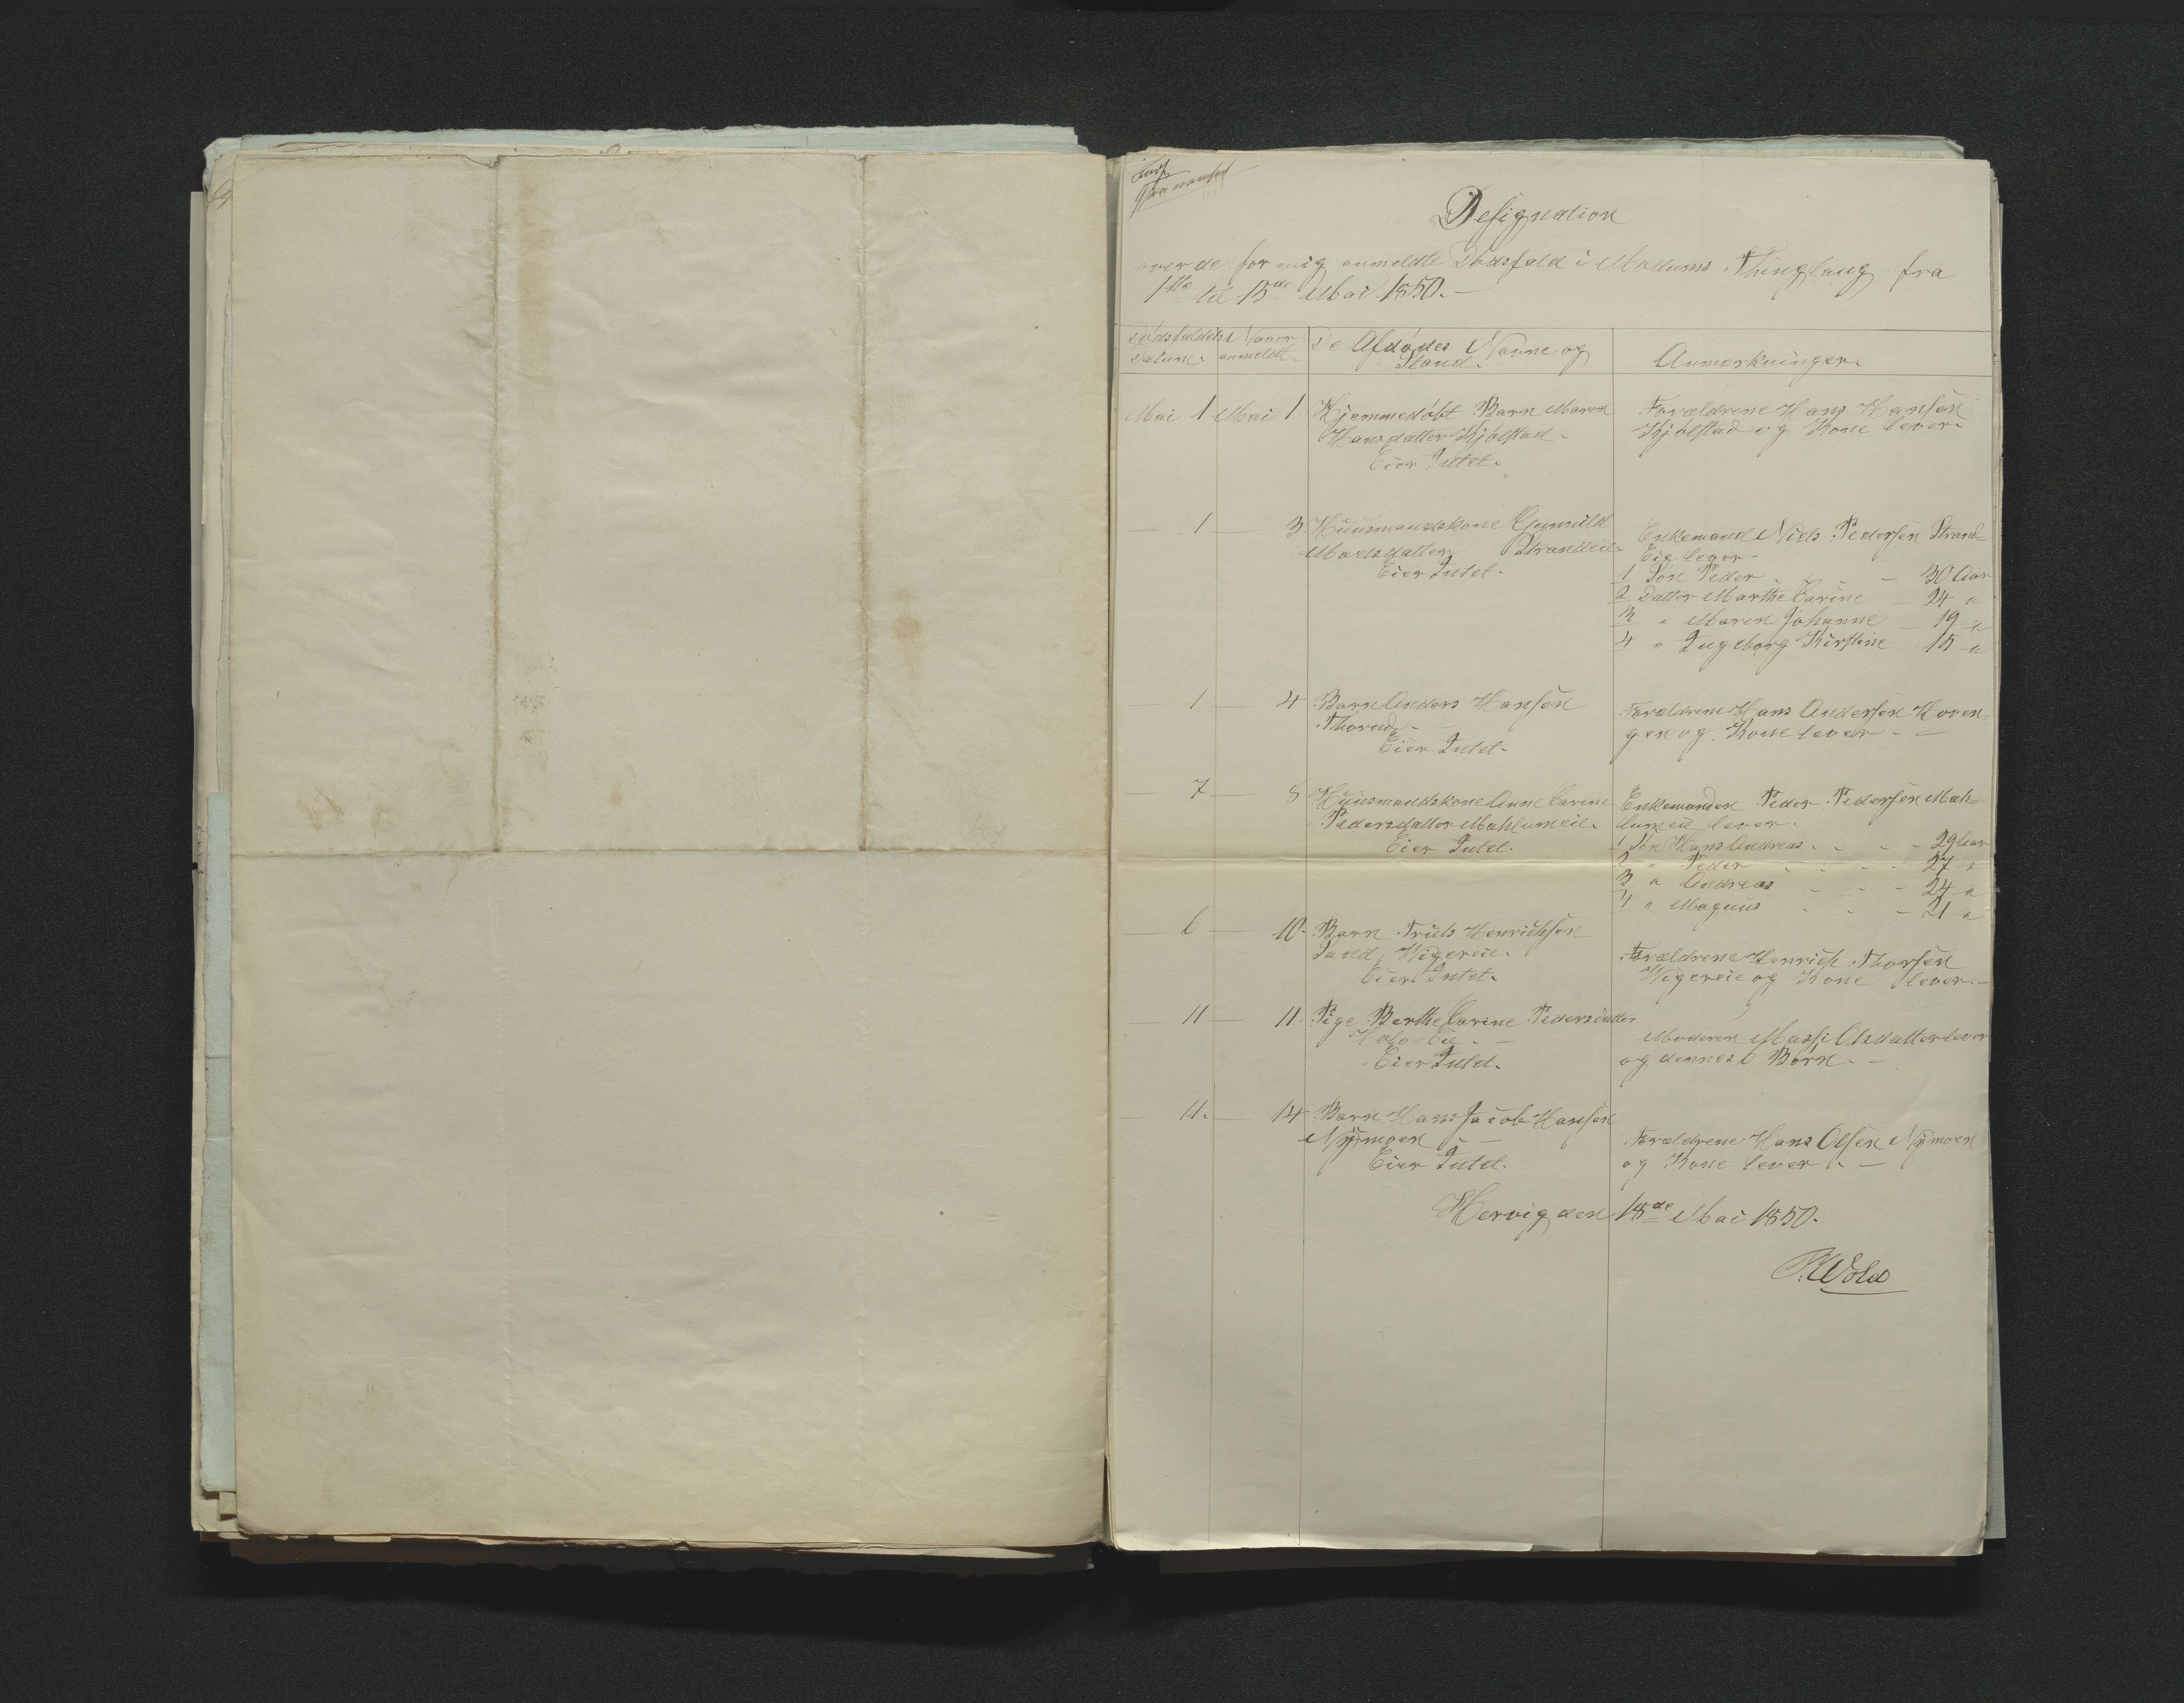 Designation
over de for mig anmeldte Dødsfald i Modums Thinglaug fra
1ste til 15de Mai 1850.-
Dødsfaldets Datum.
Naar anmeldt.
De Afdødes Navne og Stand.
Anmærkninger.
Mai 1 Mai 1 Hjemmedøbt Barn Maren
Hansdatter Kjølstad.
Eier Intet.
Forældrene Hans Hansen
Kjølstad og Kone lever.
— 1 — 3 Huusmandskone Gunnild
Madsdatter Strandeie.
Eier Intet.
Enkemand Niels Pedersen Strand
Eie lever-
1 Søn Peder - - 30 Aar
2 Datter Marthe Carine - 24 "
3 " Maren Johanne - 19 "
4 " Ingeborg Kirstine 15 "
— 1 — 4 Barn Anders Hansen
Thorud.-
Eier Intet.
Forældrene Hans Andersen Hoven-
gen og Kone lever.-
— 7 — 8 Huusmandskone Anne Carine
Pedersdatter Mahlumeie.
Eier Intet.
Enkemanden Peder Pedersen Mah-
lumeie lever.
1 Søn Hans Andreas . . - - 29 Aar
2 " Peder . . . - 27 "
3 " Andreas . . - 24 "
4 " Magnus . . - 21 "
— 6 — 10. Barn Truls Henrichsen
Wigereie.
Eier Intet.
Forældrene Henrich Thorsen
Wigereie og Kone lever.-
— 11 — 11. Pige Berthe Carine Pedersdatter
Eie . -
Eier Intet.
Moderen Olsdatter lever
og dennes 6 Børn.-
— 11. — 14 Barn Hans Jacob Hansen
Nymoen . -
Eier Intet.
Forældrene Hans Olsen Nymoen
og Kone lever . -
Hervig den 15de Mai 1850.
Wold